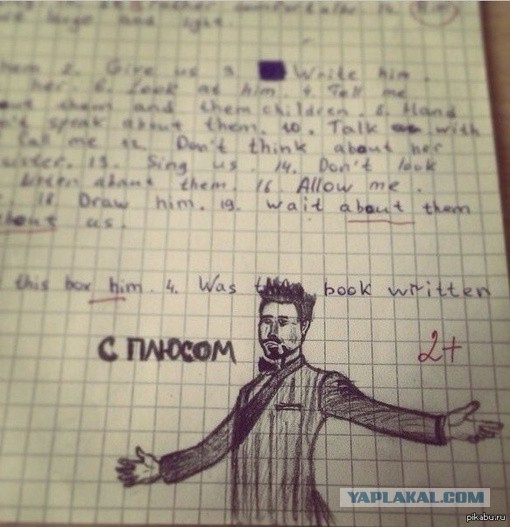 large and light.
them 2. Give us 3. Write him.
her. 6. Look at him. 7. Tell me
about them and them children. 8. Hand
n't speak about them. 10. Talk with
call me 12. Don't think about her
13. Sing us. 14. Don't look
Listen about them. 16. Allow me.
18. Draw him. 19. wait about them
about us.
this box him. 4. Was book written
С ПЛЮСОМ
2+
YAPLAKAL.COM
pikabu.ru